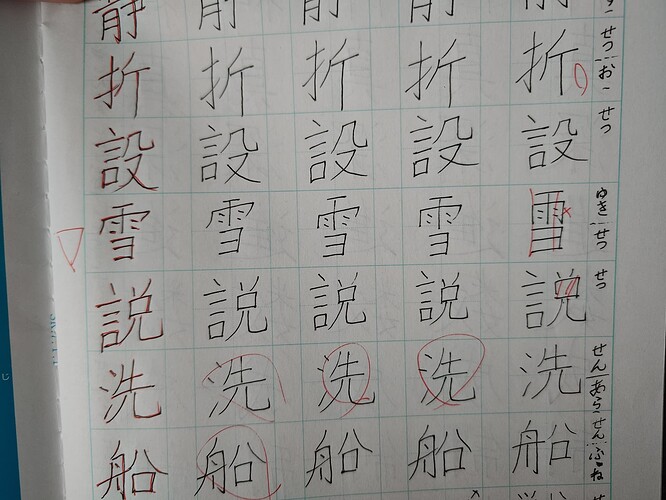 静 静 静 静 静
折 折 折 折 折 せつ おー
設 設 設 設 設 せつ
雪 雪 雪 雪 雪 ゆき せつ
説 説 説 説 説 せつ
洗 洗 洗 洗 洗 せん あら
船 船 船 船 船 せん ふね